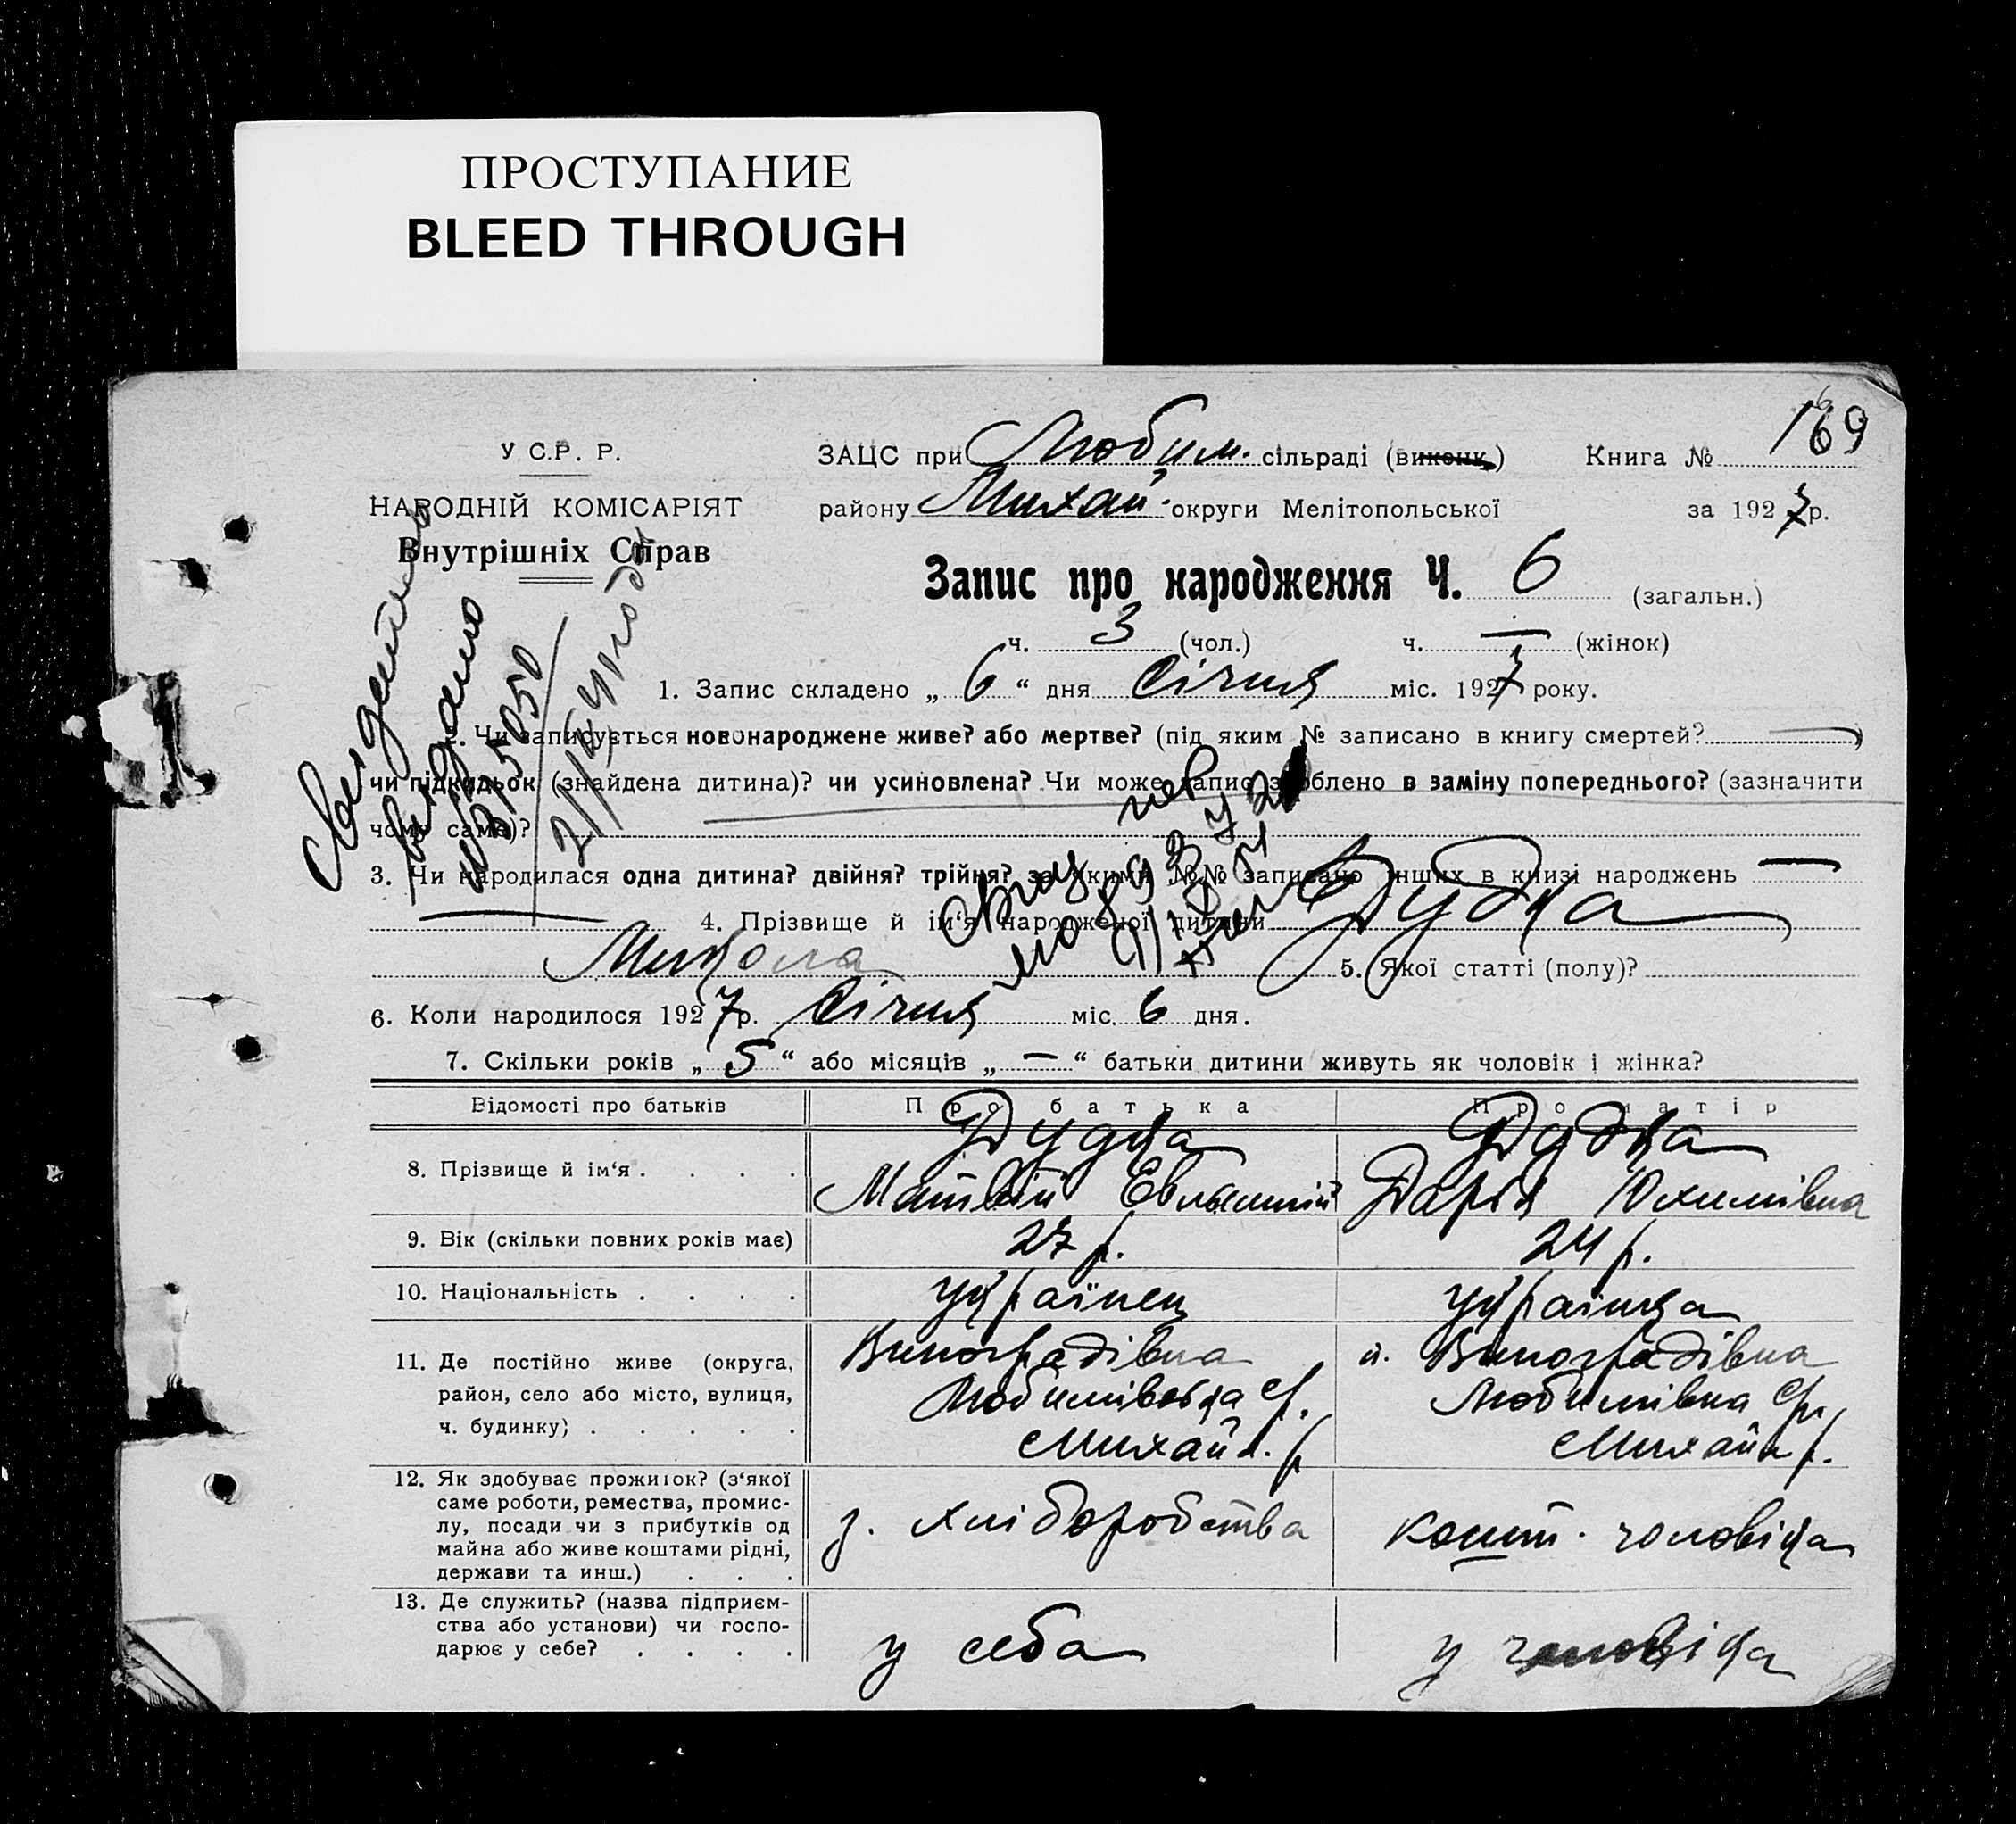 ПРОСТУПАНИЕ
BLEED THROUGH
169
У С.Р. Р.
ЗАЦС при Любим. сільраді (виконк.) Книга №
НАРОДНІЙ КОМІСАРІЯТ
району Михай. округи Мелітопольської за 1927 р.
Внутрішніх Справ
Запис про народження Ч. 6 (загальн.)
ч. 3 (чол.) ч. — (жінок)
1. Запис складено „ 6 “ дня Січня міс. 1927 року.
Чи записується новонароджене живе? або мертве? (під яким № записано в книгу смертей? — )
чи підкидьок (знайдена дитина)? чи усиновлена? Чи може запис зроблено в заміну попереднього? (зазначити
чому саме)?
3. Чи народилася одна дитина? двійня? трійня? за якими №№ записано інших в книзі народжень —
4. Прізвище й ім‘я народженої дитини Дудка
Микола 5. Якої статті (полу)?
6. Коли народилося 1927 р. Січня міс. 6 дня.
7. Скільки років „ 5 “ або місяців „ — “ батьки дитини живуть як чоловік і жінка?
Відомості про батьків Про батька Про матір
8. Прізвище й ім‘я . . . . Дудка Дудка
Матвій Дарія Юхимівна
9. Вік (скільки повних років має) 27 р. 24 р.
10. Національність . . . . українец українка
11. Де постійно живе (округа, Виноградівка Виноградівка
район, село або місто, вулиця,
ч. будинку) . . . . .
Михайл. р. Михайл р.
12. Як здобуває прожиток? (з‘якої
саме роботи, ремества, промис-
лу, посади чи з прибутків од з. хліборобства кошт. чоловіка
майна або живе коштами рідні,
держави та инш.) . . .
13. Де служить? (назва підприєм-
ства або установи) чи госпо- у себа у чоловіка
дарює у себе? . . . .